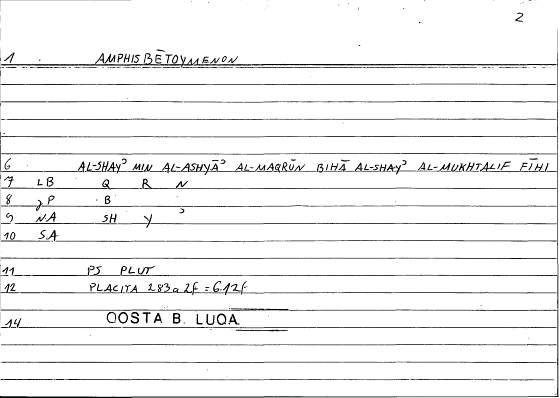 2
1 AMPHISBĒTOYMENON
6 AL-SHAYʾ MIN AL-ASHYĀʾ AL-MAQRŪN BIHĀ AL-SHAYʾ AL-MUKHTALIF FĪHI
7 LB Q R N
8 P B
9 NA SH Y ʾ
10 SA
11 PS PLUT
12 PLACITA 283a 2f = 6.12f
14 QOSTA B. LUQA